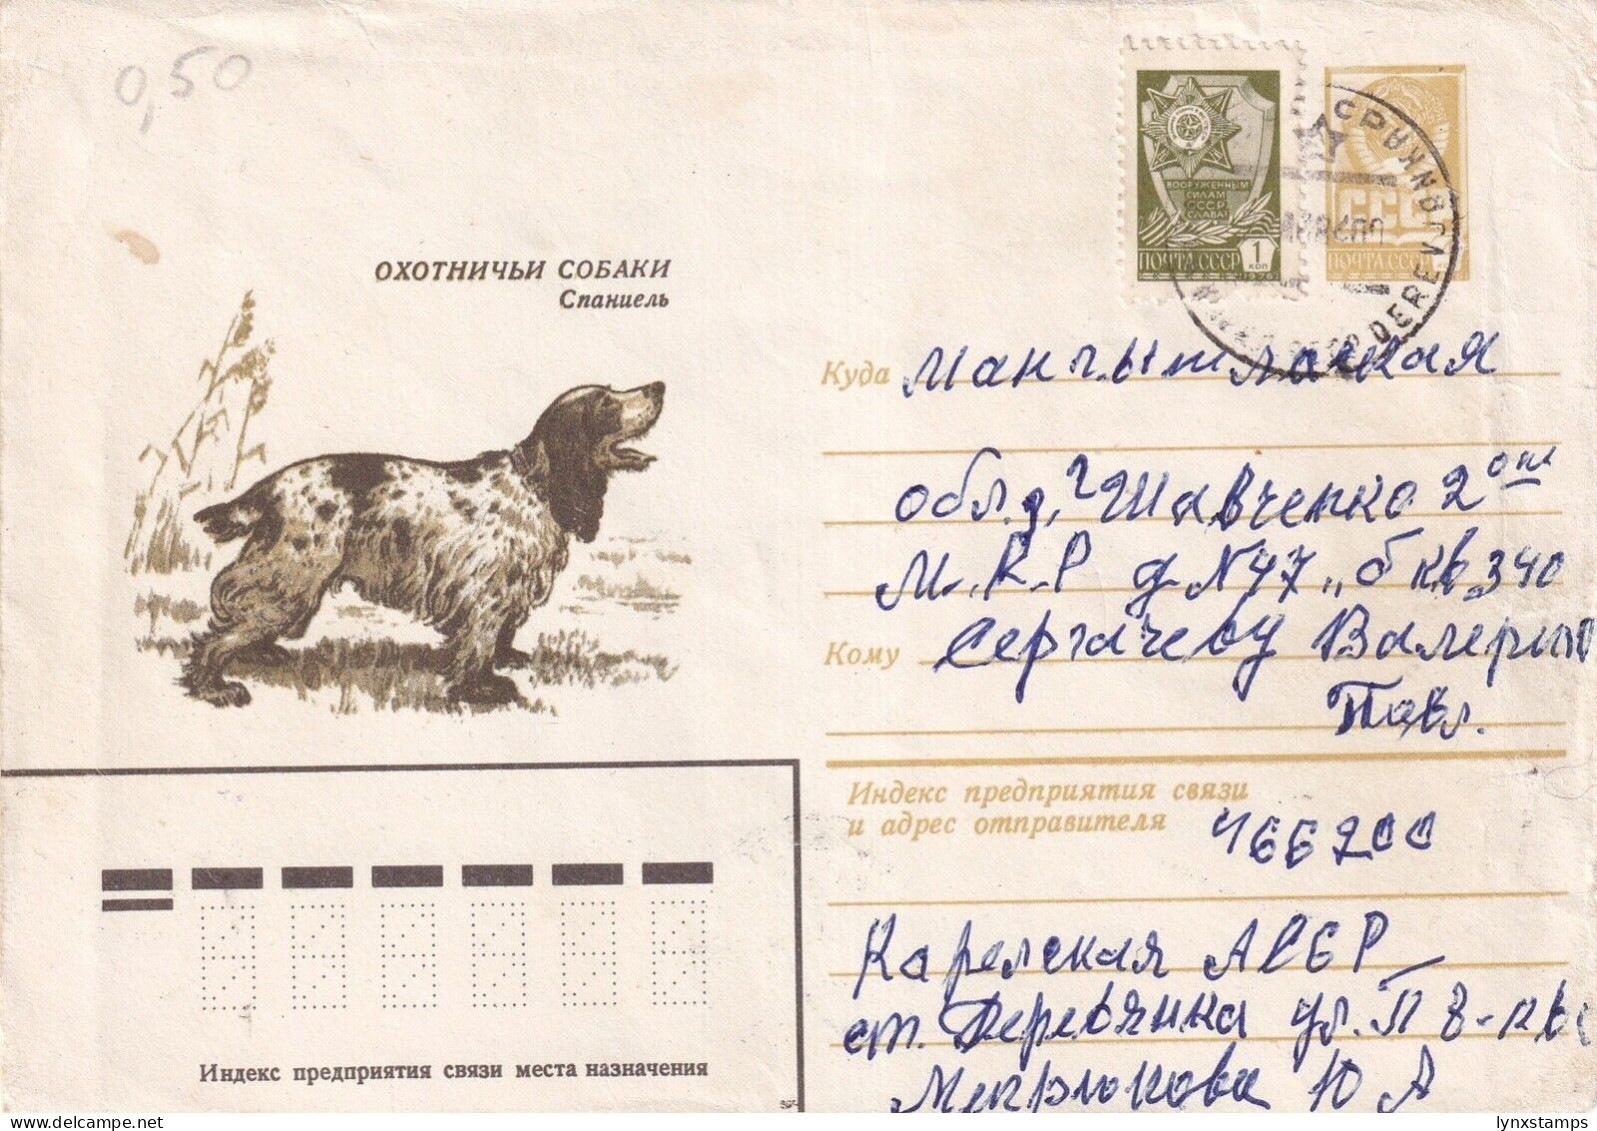 0,50
ВООРУЖЕННЫМ
СИЛАМ
СССР
СЛАВА!
ПОЧТА СССР 1 КОП
1976
СССР
ПОЧТА СССР
DEREVJANKA
ОХОТНИЧЬИ СОБАКИ
Спаниель
Куда Мангышлакская
обл. г. Шавченко 2 ой
М.К-Р д N 47 "б кв 340
Кому Сергачеву Валерию
Павл.
Индекс предприятия связи
и адрес отправителя 466200
Карельская АССР
ст. Деревянка ул. П 8-кв
Мекрюкова Ю А
Индекс предприятия связи места назначения
lynxstamps